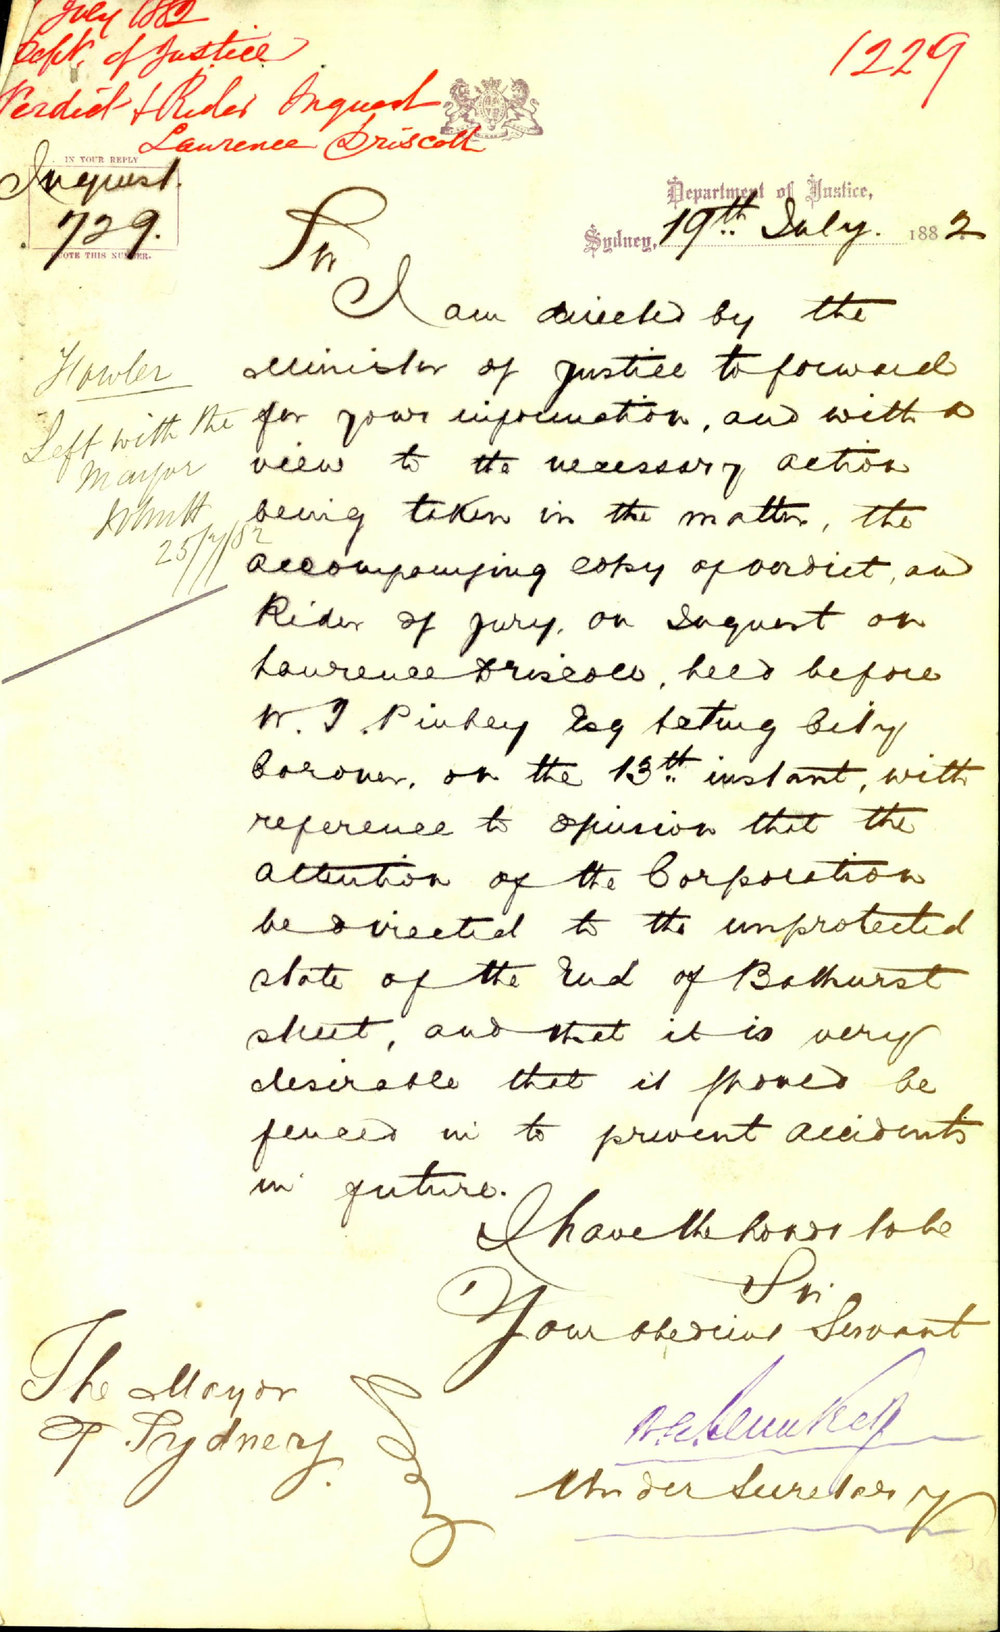 July 1882
Dept. of Justice
Verdict & Rider Inquest
Laurence Driscoll
1229
IN YOUR REPLY
Inquest.
729.
QUOTE THIS NUMBER.
Department of Justice,
Sydney, 19th July. 1882
Sir
I am directed by the
Minister of Justice to forward
for your information, and with a
view to the necessary action
being taken in the matter, the
accompanying copy of verdict, and
Rider of jury, on Inquest on
Laurence Driscoll, held before
W. T. Pinhey Esq Acting City
Coroner, on the 13th instant, with
reference to opinion that the
attention of the Corporation
be directed to the unprotected
state of the End of Bathurst
street, and that it is very
desirable that it should be
fenced in to prevent accidents
in future.
I have the honor to be
Sir
Your obedient Servant
Under Secretary
The Mayor
of Sydney.
Fowler
Left with the
Mayor
25/7/82